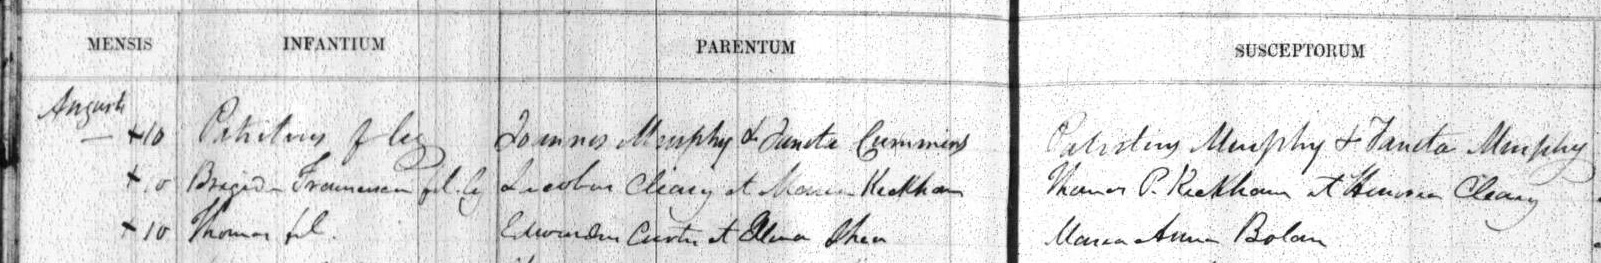 MENSIS INFANTIUM PARENTUM SUSCEPTORUM
Augusti
+10 Patritius f leg Joannes Murphy & Sancta Cummins Patritius Murphy & Sancta Murphy
+10 Brigida Francisca fil. leg Jacobus Cleary et Maria Kickham Thomas P. Kickham et Honora Cleary
+10 Thomas fil. Edwardus et Elena Shea Maria Anna Bolan